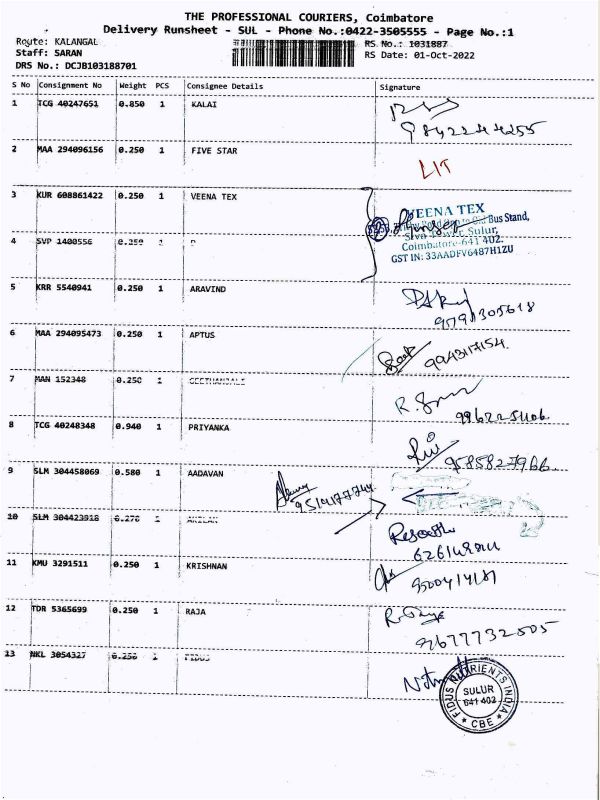 THE PROFESSIONAL COURIERS, Coimbatore
Delivery Runsheet - SUL - Phone No.:0422-3505555 - Page No.:1
Route: KALANGAL
RS No.: 1031887
Staff: SARAN
RS Date: 01-Oct-2022
DRS No.: DCJB103188701
S No Consignment No Weight PCS Consignee Details Signature
1 TCG 40247651 0.850 1 KALAI
9842244255
2 MAA 294096156 0.250 1 FIVE STAR
LIT
3 KUR 608861422 0.250 1 VEENA TEX
VEENA TEX
Bus Stand,
Sulur,
Coimbatore-641 402.
GST IN: 33AADFV6487H1ZU
4 SVP 1400556 0.250 1
5 KRR 5540941 0.250 1 ARAVIND
9791305618
6 MAA 294095473 0.250 1 APTUS
9943117154.
7 MAN 152348 0.250 1 GEETHANJALI
8 TCG 40248348 0.940 1 PRIYANKA
9585827966.
9 SLM 304458069 0.580 1 AADAVAN
9514177744
10 SLM 304423918 0.270 1
11 KMU 3291511 0.250 1 KRISHNAN
12 TDR 5365699 0.250 1 RAJA
9677732505
13 NKL 3054327 0.250 1 FIDUS
FIDUS NUTRIENTS INDIA
SULUR
641 402
* CBE *